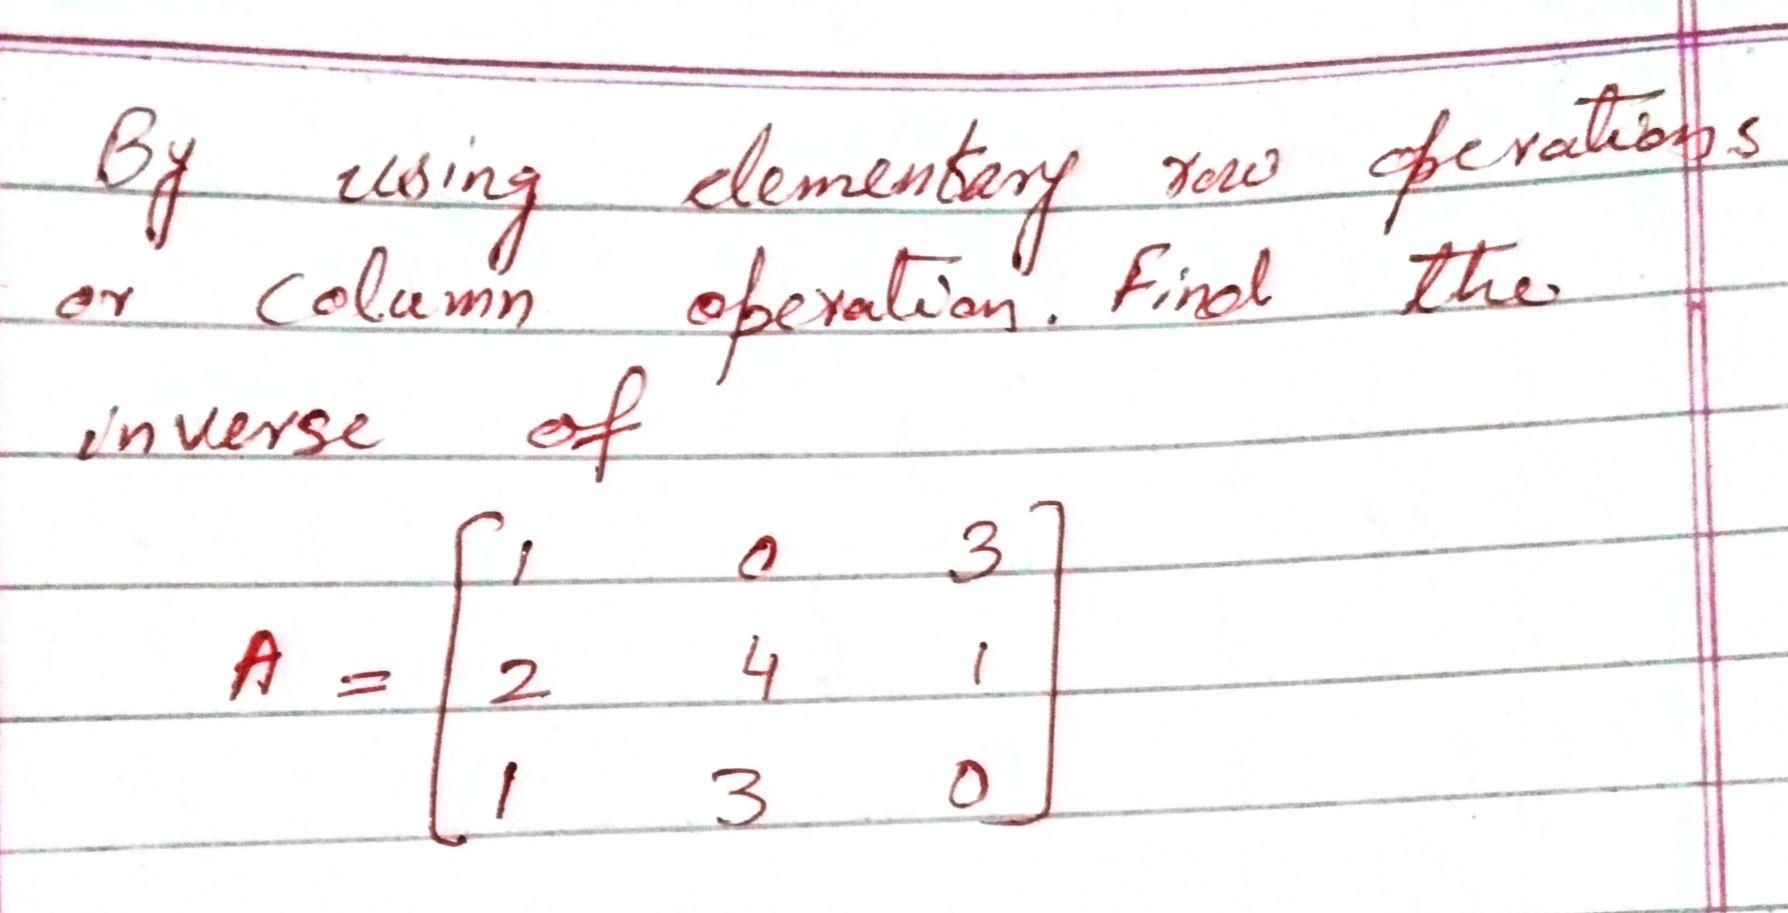 By using elementary row operations
or column operation. Find the
inverse of
1 0 3
A = 2 4 1
1 3 0